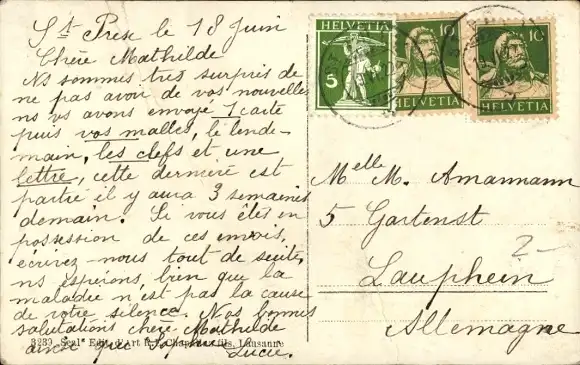 St Prex le 18 Juin
Chère Mathilde
Ns sommes très surpris de
ne pas avoir de vos nouvelles
ns vs avons envoyé 1 carte
puis vos malles, le lende-
main, les clefs et une
lettre, cette dernière est
partie il y aura 3 semaines
demain. Si vous êtes en
possession de ces envois,
écrivez-nous tout de suite,
ns espérons bien que la
maladie n'est pas la cause
de votre silence. Nos bonnes
salutations chère Mathilde
ainsi que
Lucie.
3239 Seul Edit. d'Art Lausanne
HELVETIA
5
10
HELVETIA
10
HELVETIA
Melle M. Amannann
5 Gartenst
Laupheim
Allemagne